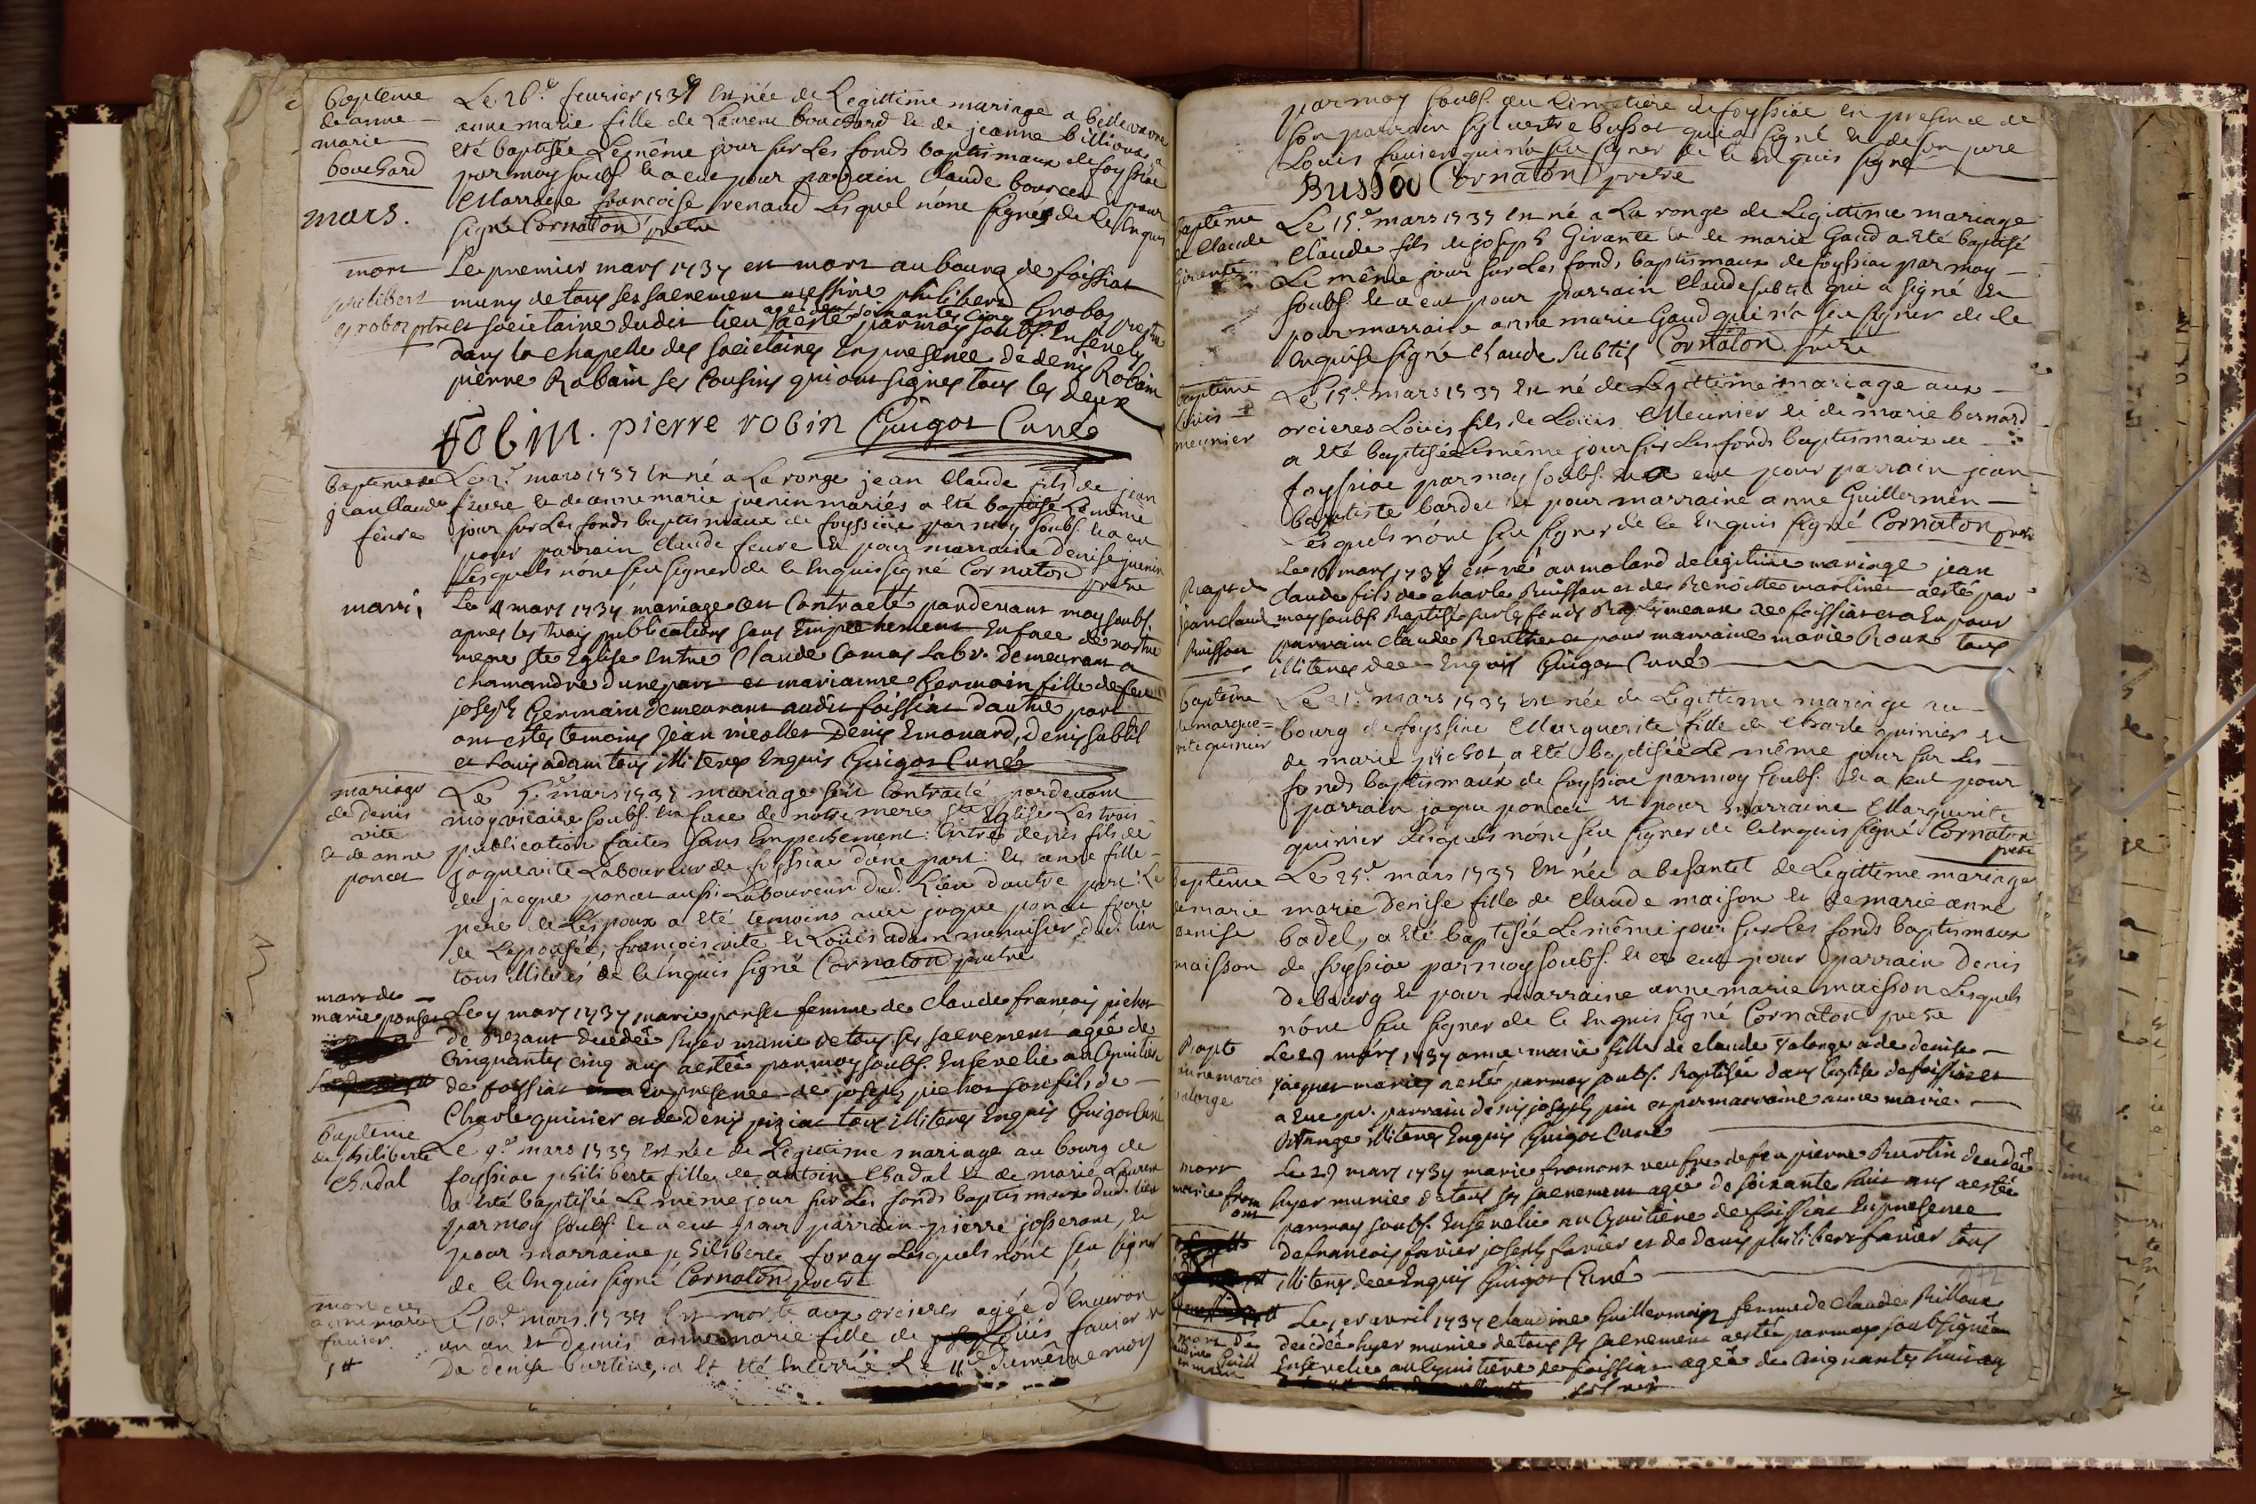 bapteme
de anne
marie
bouchard
Le 26.e feurier 1737 est née de Legittime mariage a bellevavre
anne marie fille de Laurent bouchard et de jeanne billioux, a
eté baptisée Le même jour sur Les fonds baptismaux de foyssiac
par moy soubs. et a eut pour parrain Claude bourcet et pour
Marraine francoise renaud Lesquel n'ont signés de Ce Enquis
signé Cornaton prêtre
mars.
mort
philibert
grobos ptre
Le premier mars 1737 est mort au bourg de foissiat
muny de tous ses sacrement messire philibert Grobos prestre
et societaine dudit lieu agé de soixantes cinq aesté par moy soubs. Ensevely
dans la chapelle des societaires En presence de denis Robin
pierre Robain ses Cousins qui ont signes tous les deux
Robin. pierre robin Guigot Curé
bapteme de
jean Claude
feivre
Le 2.e mars 1737 est né a La ronge jean Claude fils de jean
fievre et de anne marie juenin mariés a eté baptisé Le même
jour sur Les fonds baptismaux de foyssiac par moy soubs. et a eut
pour parrain Claude feivre et pour marraine Denise juenin
Lesquels n'ont sçu signer de Ce Enquis signé Cornaton prêtre
mari;
Le 4 mars 1737 mariage est Contracté pardevant moy soubs.
apres les trois publications sans Empechement En face de nostre
mere ste Eglise Entre Claude Comas labr. demeurant a
chamandre dune part et marianne Germain fille de feu
joseph Germain demeurant audit foissiat dautre part
ont estes temoins jean nicollet Denis Emonard, denis sabtil
et Louis adam tous illiteres Enquis Guigot Curé
mariage
de denis
vite
et de anne
poncet
Le 5.e mars 1737 mariage soit Contracté pardevant
moy vicaire soubs. En face de notre mere Ste Eglise Les trois
publication faites sans Empechement: Entre denis fils de
jaque vite Laboureur de foyssiac d'une part: et anne fille
de jacque poncet aussi Laboureur dud. Lieu d'autre part: Le
pere de L'epoux a eté temoins avec jaque poncet frere
de L'epousée, françois vite et Loüis adam menuisier dud. lieu
tous illiteres de Ce Enquis signé Cornaton prêtre
mort de
marie ponset
Le 7 mars 1737 marie ponset femme de claude francois pichot
de Rezant decedée hyer munie de tous ses sacrement agée de
Cinquantes cinq ans aestée par moy soubs. Ensevelie au Cymitiere
de foissiat En presence de joseph pichot son fils de
Charle quinier et de Denis piziat tous illiteres Enquis Guigot Curé
bapteme
de philiberte
Chadal
Le 9.e mars 1737 est née de Legittime mariage au bourg de
foyssiac philiberte fille de antoine Chadal et de marie Laurent
a eté baptisée Le même jour sur Les fonds baptismaux dud. lieu
par moy soubs. et a eut pour parrain pierre josserant, et
pour marraine philiberte foray Lesquels n'ont sçu signer
de Ce Enquis signé Cornaton prêtre
mort de
anne marie
favier
1#
Le 10.e mars 1737 est morte aux orcieres agée d'Environ
un an et demis anne marie fille de Loüis favier et
De denise burtine, a et eté Enterrée Le 11.e du même mois
par moy soubs. au Cimetiere de foyssiac en presence de
son parrain sylvestre bussot qui a signé et de son pere
Louis favier qui n'a sçu signer de Ce Enquis signé
Bussod Cornaton prêtre
baptême
de Claude
Girante
Le 15.e mars 1737 est né a La ronge de Legittime mariage
Claude fils de joseph Girante et de marie Gaud a eté baptisé
Le même jour sur Les fonds baptismaux de foyssiac par moy
soubs. et a eut pour parrain Claude subtil qui a signé et
pour marraine anne marie Gaud qui n'a sçu signer de Ce
Enquise signé Claude subtil Cornaton prêtre
baptême
Louis
meunier
Le 15.e mars 1737 est né de Legittime mariage aux
orcieres Loüis fils de Loüis Meunier et de marie bernard
a eté baptisée Le même jour sur Les fonds baptismaux de
foyssiac par moy soubs. et a eut pour parrain jean
baptiste bardet et pour marraine anne Guillermin
Lesquels n'ont sçu signer de Ce Enquis signé Cornaton prêtre
Bapt de
jean claude
Buisson
Le 16 mars 1737 est né au molard de legitime mariage jean
claude fils de charle Buisson et de Benoitte martinet aesté par
moy soubs. Baptisé sur les fonds Baptismeaux de foissiat et a Eu pour
parrain claude Berthet et pour marraine marie Roux tous
illiteres de ce Enquis Guigot Curé
baptême
de margue=
rite quinier
Le 21.e mars 1737 est née de Legittime mariage au
bourg de foyssiac Marguerite fille de Charle quinier et
de marie pichot, a eté baptisée Le même jour sur Les
fonds baptismaux de foyssiac par moy soubs. et a eut pour
parrain jaque poncet et pour marraine Marguerite
quinier Lesquels n'ont sçu signer de Ce Enquis signé Cornaton
prêtre
baptême
de marie
denise
maisson
Le 25.e mars 1737 est née a besantet de Legittime mariage
marie Denise fille de Claude maison et de marie anne
badel, a eté baptisée Le même jour sur Les fonds baptismaux
de foyssiac par moy soubs. et a eut pour parrain Denis
Debourg et pour marraine anne marie maisson Lesquels
n'ont sçu signer de Ce Enquis signé Cornaton prêtre
Bapt
anne marie
valonge
Le 29 mars 1737 anne marie fille de claude valonge et de denise
jacquet mariez aesté par moy soubs. Baptisée dans leglise de foissiat
a Eue pr. parrain denis joseph pin et pr marraine anne marie
illiteres Enquis Guigot Curé
mort
marie from
ont
Le 29 mars 1737 marie fromont veufve de feu pierre Burtin decedée
hyer munie de tous ses sacrement agée de soixante huit ans aestée
par moy soubs. Ensevelie au Cymitiere de foissiat En presence
de francois favier joseph favier et de denis philibert favier tous
illiteres de ce Enquis Guigot Curé
mort de
claudine Guill
ermain
Le 1er avril 1737 claudine Guillermain femme de claude Billoux
decedée hyer munie de tous ses sacrement aestée par moy soubsigné
Ensevelie au Cymitiere de foissiat agée de Cinquantes huit ans